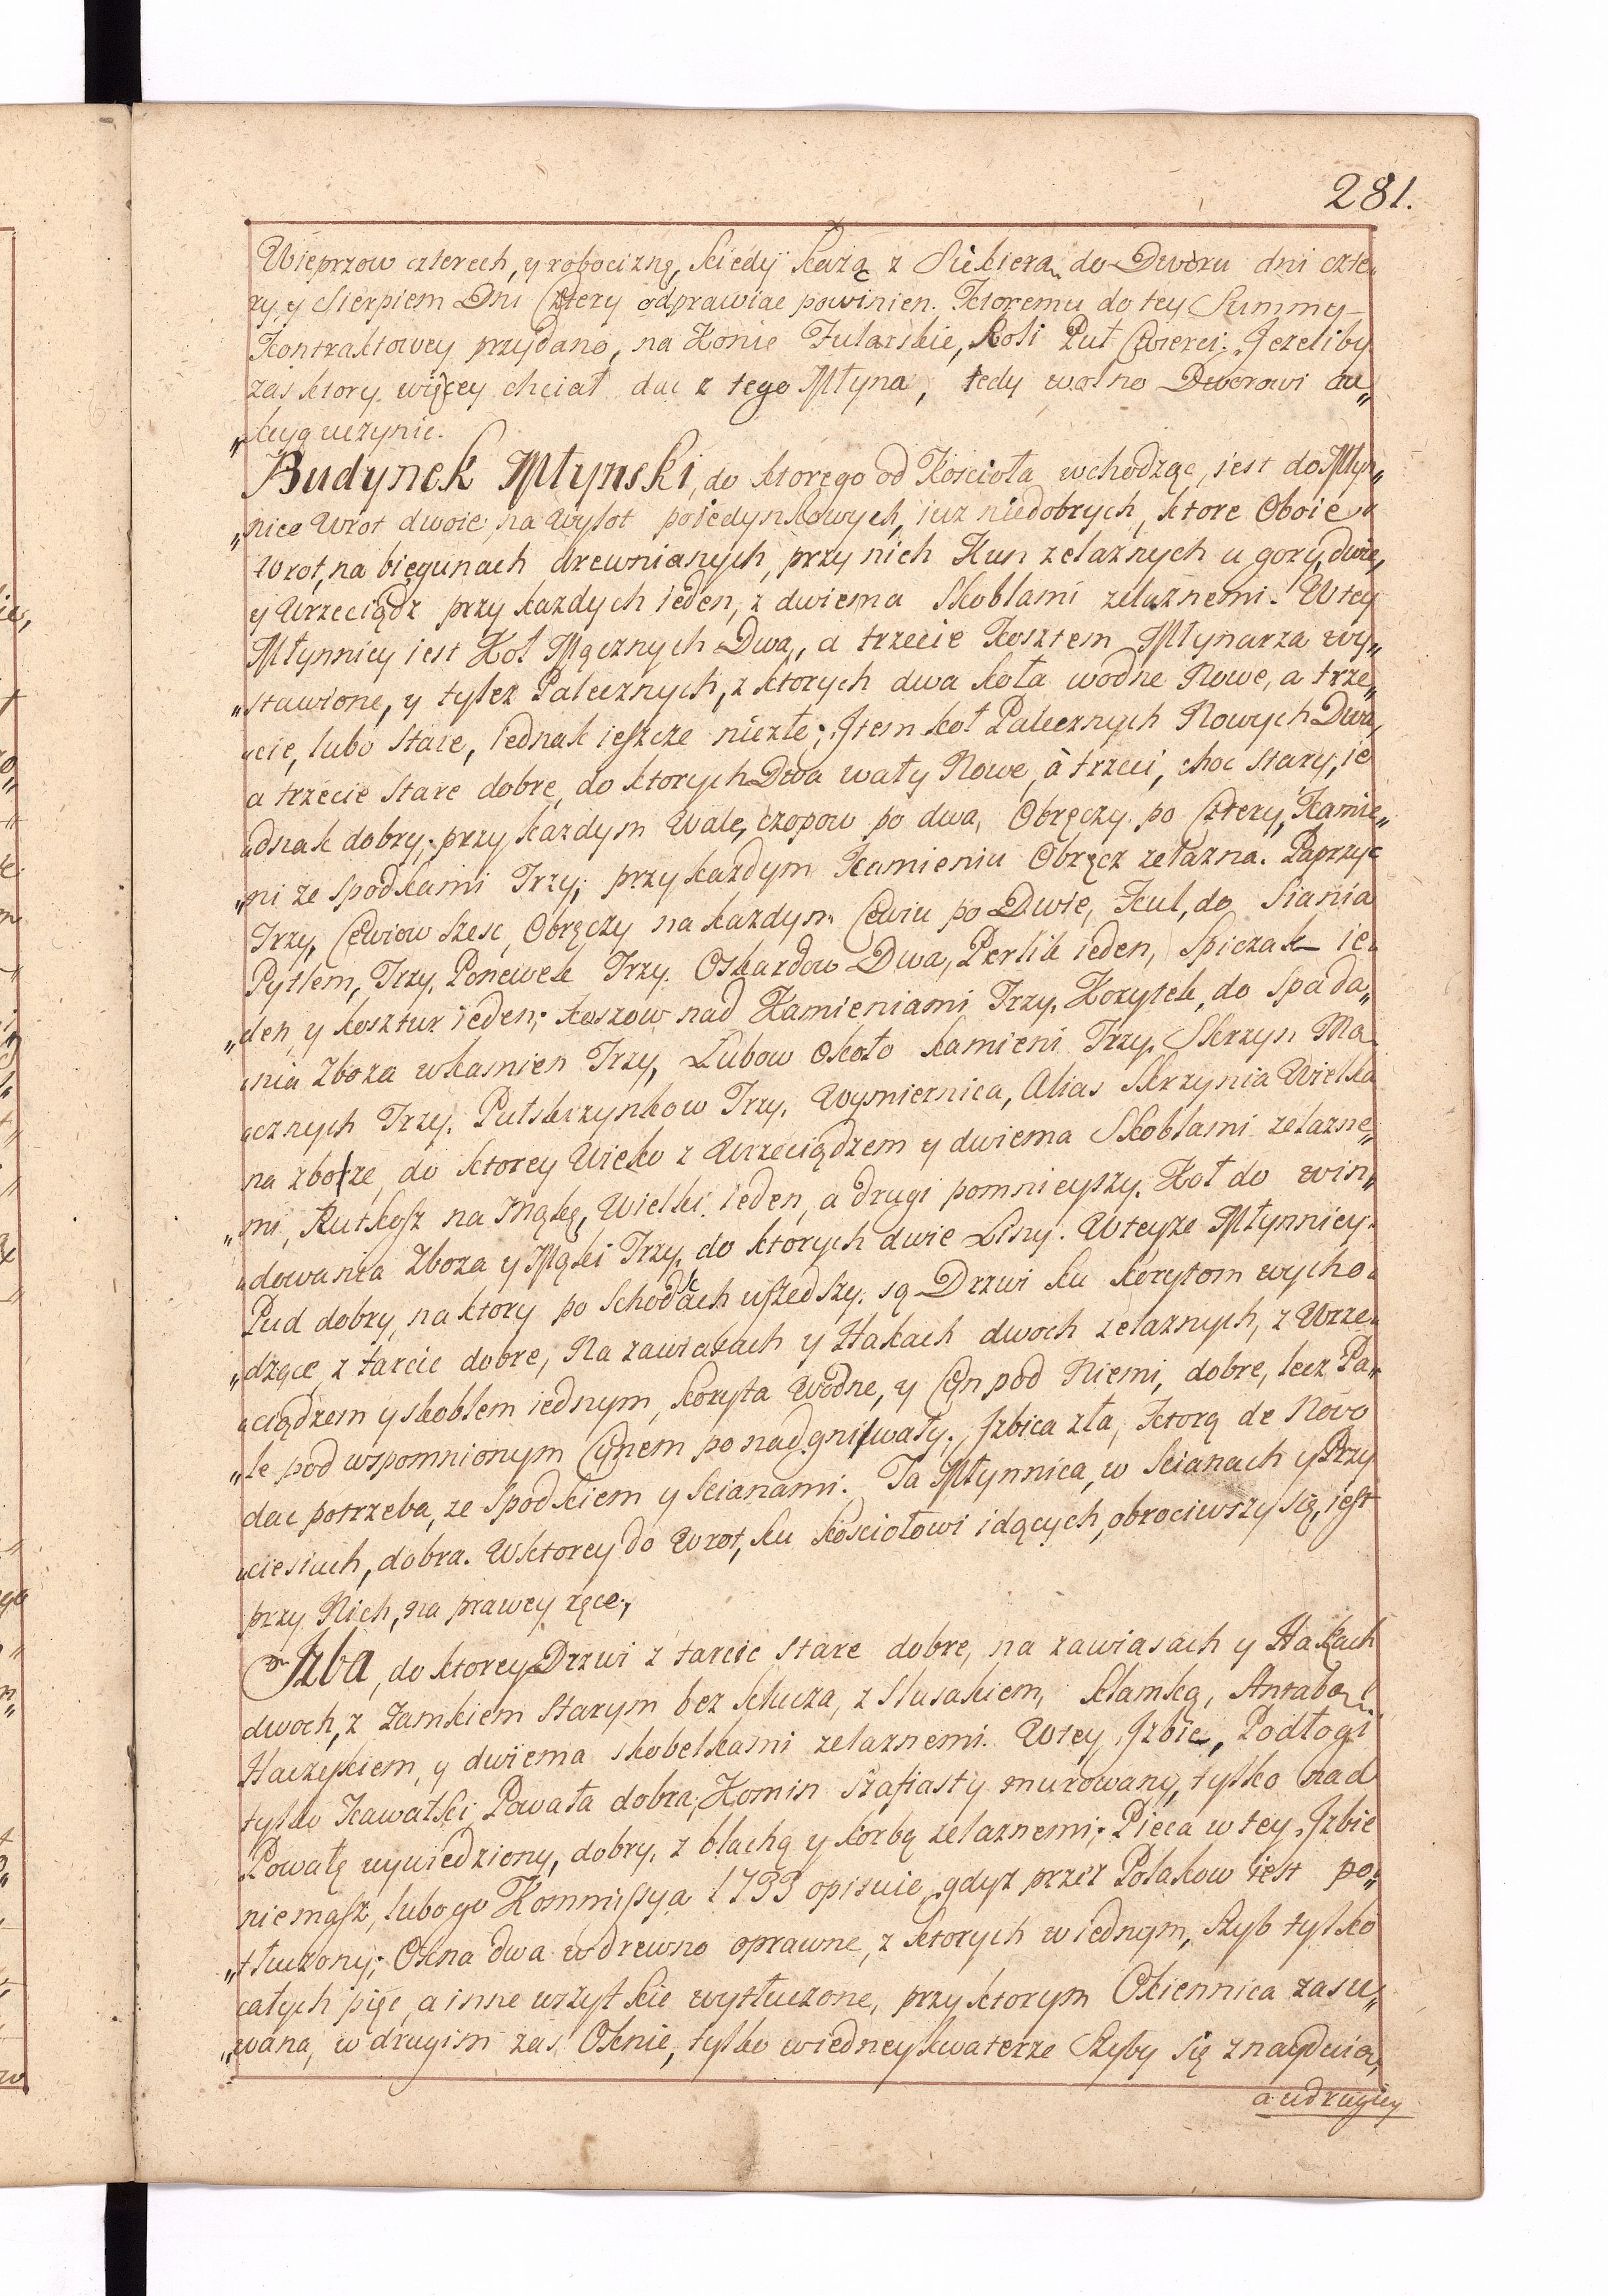 281.
Wieprzow czterech, y robociznę, kiedy każą z Siekierą do Dworu dni czte„
ry, y Sierpiem Dni Cztery odprawiac powinien. Ktoremu do tey Summy
Kontraktowey przydano, na Konie Fularskie, Roli Puł Cwierci; Jezeliby
zas ktory więcey chciał dac z tego Młyna, tedy wolno Dworowi au„
„kcyą uczynic.
Budynek Młynski, do ktorego od Koscioła wchodząc, iest do Młyn„
„nice Wrot dwoie, na Wylot poiedynkowych, iuz niedobrych, ktore Oboie
Wrot, na biegunach drewnianych, przy nich Kun zelaznych u gory, dwie,
y Wrzeciądz przy kazdych ieden, z dwiema Skoblami zelaznemi. W tey
Młynnicy iest Koł Mącznych Dwa, a trzecie Kosztem Młynarza wy„
„stawione, y tylez Palecznych, z ktorych dwa koła wodne Nowe, a trze„
„cie, lubo stare, iednak ieszcze niezłe; Jtem koł Palecznych Nowych Dwa,
a trzecie stare dobre, do ktorych Dwa wały Nowe, à trzeci, choc stary, ie„
„dnak dobry; przy kazdym Wale, czopow po dwa, Obręczy po Cztery, Kamie„
„ni ze spodkami Trzy; przy kazdym Kamieniu Obręcz zelazna. Paprzyc
Trzy, Cewiow szesc, Obręczy na kazdym Cewiu po Dwie, Kul, do siania
Pytlem, Trzy, Ponewek Trzy. Oskardow Dwa, Perlik ieden, Spiczak ie„
„den y kosztur ieden; koszow nad Kamieniami Trzy. Korytek, do spada„
„nia Zboza w kamien Trzy, Lubow około kamieni Trzy. Skrzyn Mą„
„cznych Trzy. Pułskrzynkow Trzy. Wymiernica, Alias Skrzynia Wielka
na zboze, do ktorey Wieko z Wrzeciądzem y dwiema Skoblami zelazne„
„mi, Rutkosz na Mąkę, Wielki ieden, a drugi pomnieyszy. Koł do win„
„dowania Zboza y Mąki Trzy, do ktorych dwie Liny. W teyze Młynnicy
Pud dobry, na ktory po schodach uszedszy, są Drzwi ku korytom wycho„
„dzące, z tarcic dobre, Na zawiasach y Hakach dwoch zelaznych, z Wrze„
„ciądzem y skoblem iednym, koryta Wodne, y Cyn pod Niemi, dobre, lecz Pa„
„le pod wspomnionym Cynem ponadgniwały. Jzbica zła, Ktorą de Novo
dac potrzeba, ze Spodkiem y scianami. Ta Młynnica, w Scianach y Przy
„ciesiach, dobra. W ktorey do Wrot, ku kościołowi idących, obrociwszy się, iest
przy Nich, na prawey ręce,
Jzba, do ktorey Drzwi z tarcic stare dobre, na zawiasach y Hakach
dwoch, z Zamkiem starym bez klucza, z Slusakiem, klamką, Antabą,
Haczykiem, y dwiema skobelkami zelaznemi. W tey Jzbie, Podłogi
tylko Kawałki, Powała dobra, Komin Szafiasty murowany, tylko nad
Powałę wywiedziony, dobry, z blachą y korbą zelaznemi; Pieca w tey Jzbie
niemasz, lubo go Kommissya 1733 opisuie, gdyz przez Polakow iest po„
„tłuczony; Okna dwa w drewno oprawne, z ktorych w iednym, szyb tylko
całych pięc, a inne wszytkie wytłuczone, przy ktorym Okiennica zasu„
„wana, w drugim zas Oknie, tylko w iedney kwaterze Szyby się znayduią,
a w drugiey